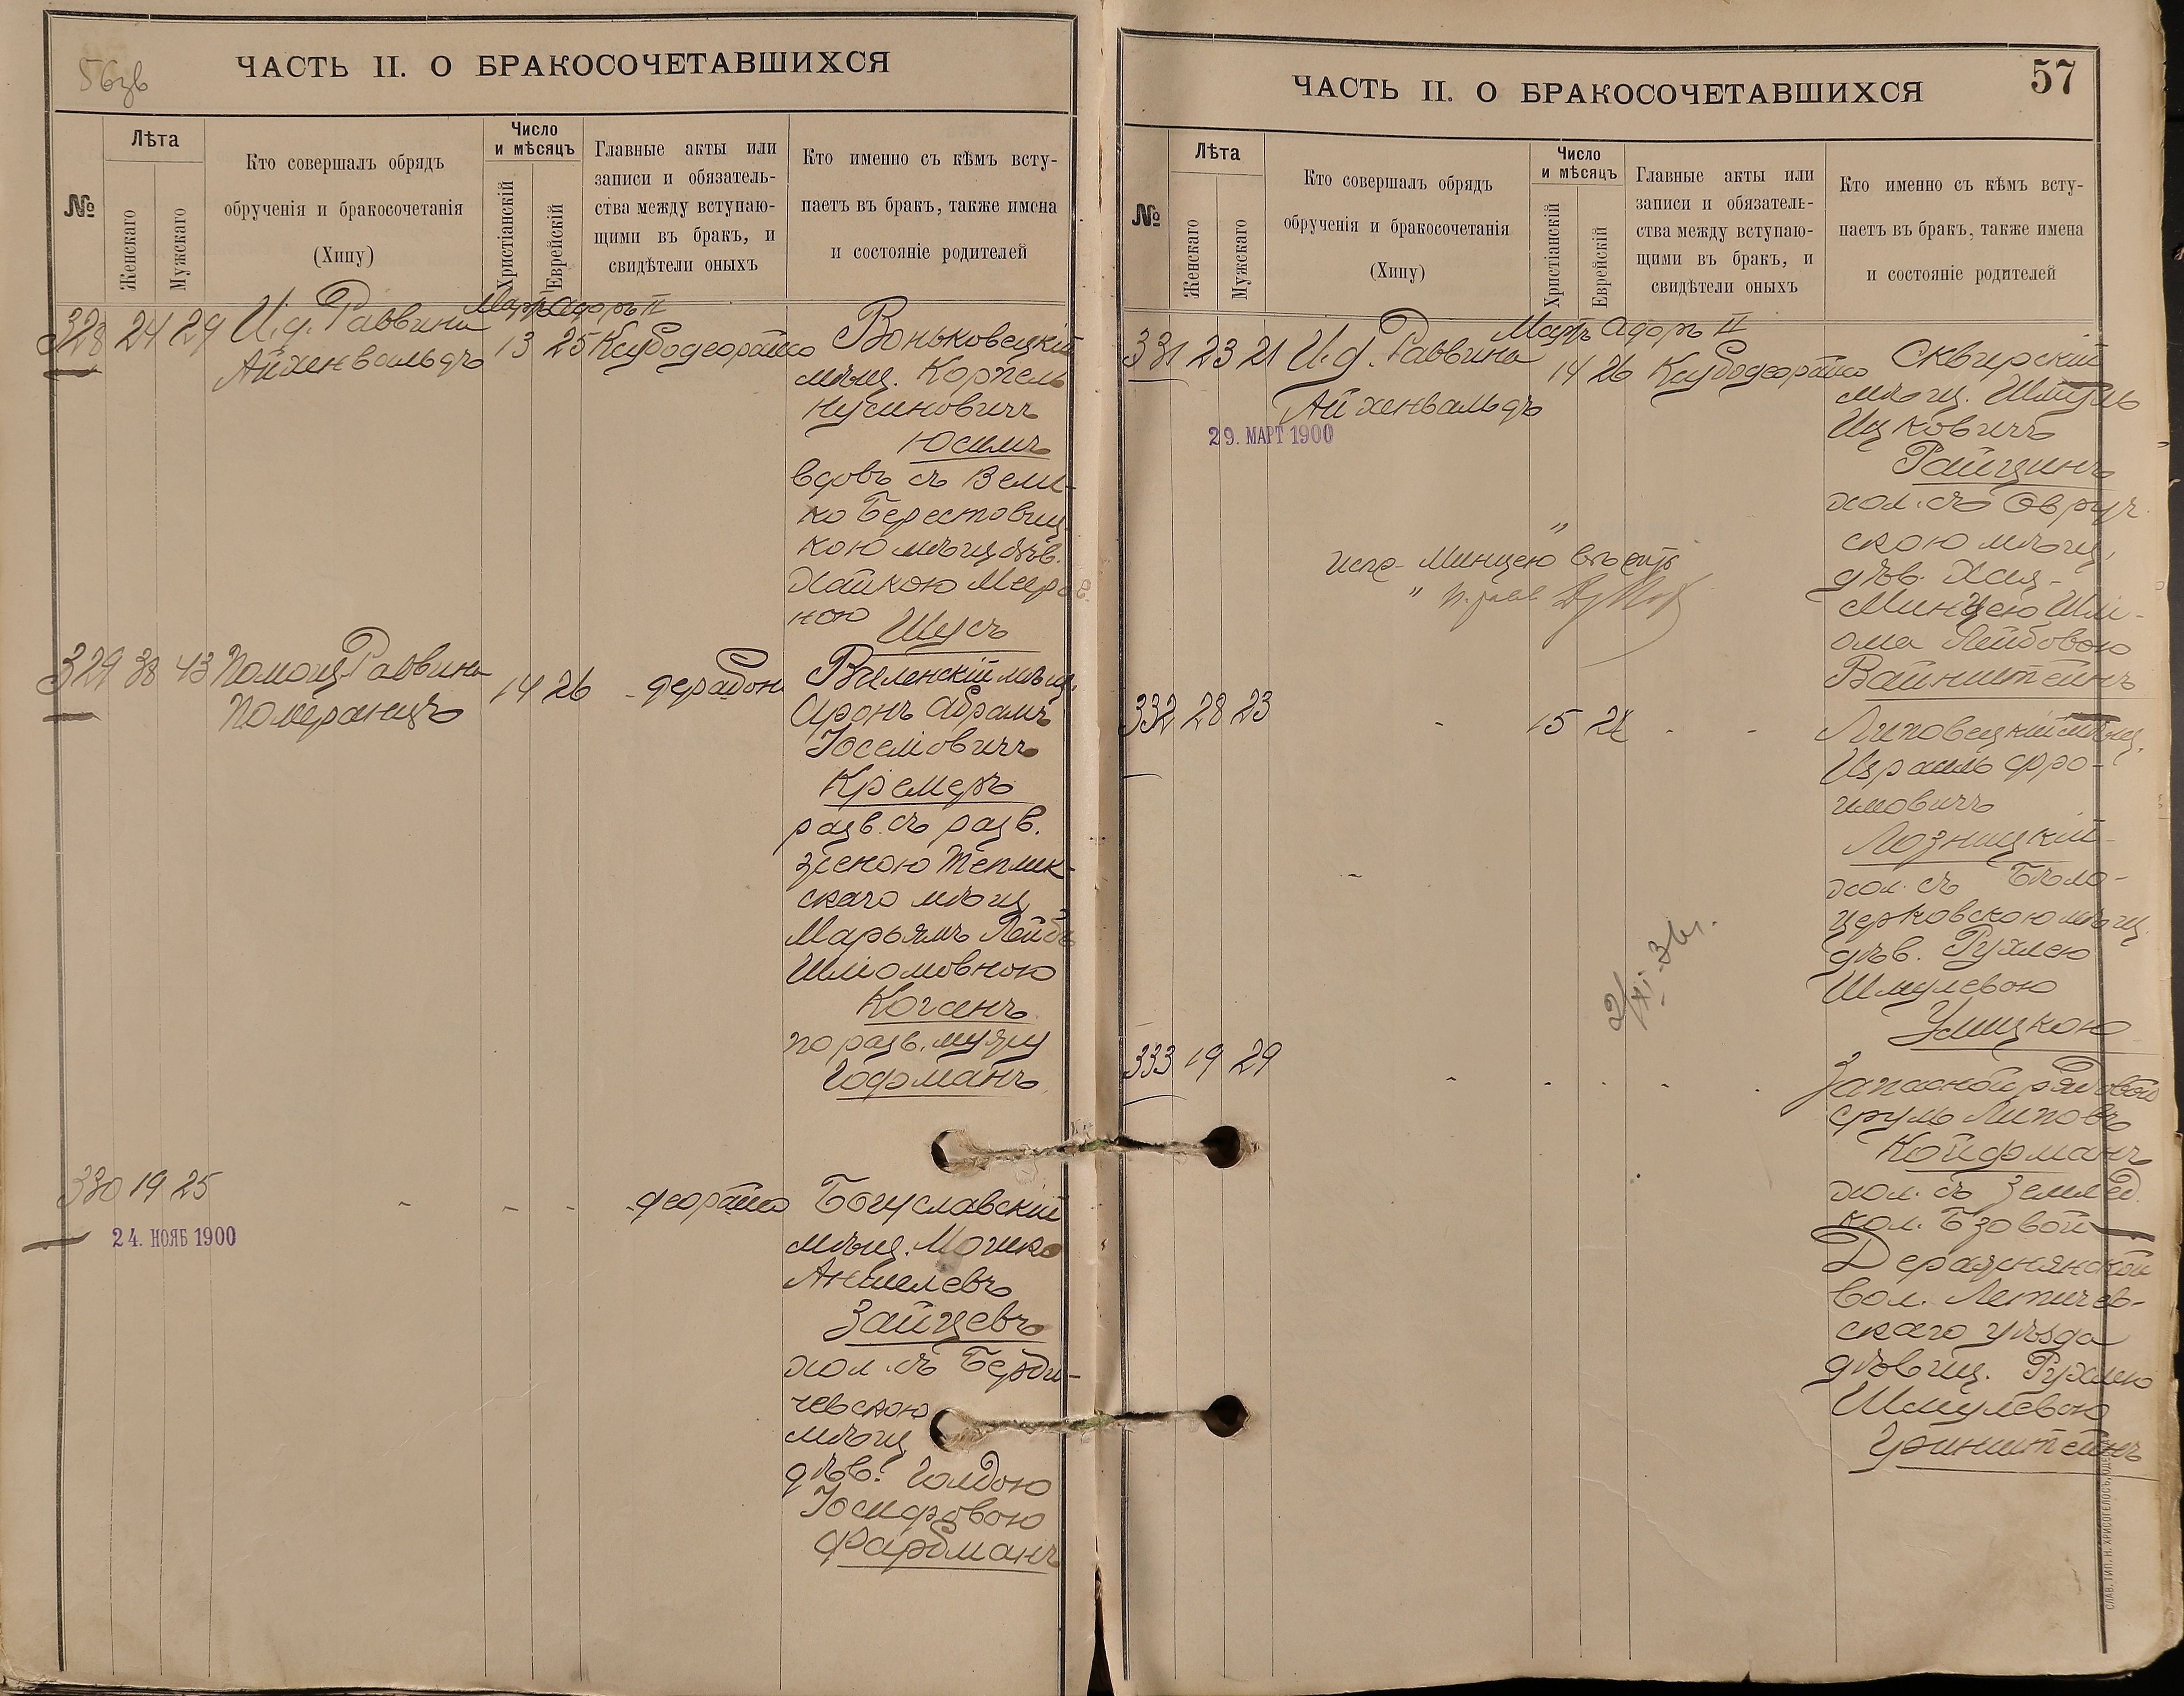 56зв
ЧАСТЬ II. О БРАКОСОЧЕТАВШИХСЯ
№
Лѣта
Женскаго
Мужскаго
Кто совершалъ обрядъ
обрученія и бракосочетанія
(Хипу)
Число
и мѣсяцъ
Христіанскій
Еврейскій
Главные акты или
записи и обязатель-
ства между вступаю-
щими въ бракъ, и
свидѣтели оныхъ
Кто именно съ кѣмъ всту-
паетъ въ бракъ, также имена
и состояніе родителей
Мартъ Адоръ II
328 24 29 И. д. Раввина
Айхенвальдъ
13 25
Воньковецкій
мѣщ. Корпель
Нусиновичъ
Юсимъ
вдовъ съ Вели-
ко Берестовиц
кою мѣщ дѣв.
Хайкою Мееров
ною Шусъ
329 38 43 Помощ Раввина
Померанцъ
14 26
Виленскій мѣщ.
Аронъ Абрамъ
Іосеіовичъ
Кремеръ
разв. съ разв.
женою Теплик-
скаго мѣщ
Марьямъ Лейбъ
Шліомовною
Коганъ
по разв. мужу
Гофманъ
330 19 25
24. НОЯБ 1900
Богуславскій
мѣщ. Мошко
Аншелевъ
Зайцевъ
хол. съ Берди-
чевскою
мѣщ
дѣв. Голдою
Іосифовою
Фарбманъ
57
ЧАСТЬ II. О БРАКОСОЧЕТАВШИХСЯ
№
Лѣта
Женскаго
Мужскаго
Кто совершалъ обрядъ
обрученія и бракосочетанія
(Хипу)
Число
и мѣсяцъ
Христіанскій
Еврейскій
Главные акты или
записи и обязатель-
ства между вступаю-
щими въ бракъ, и
свидѣтели оныхъ
Кто именно съ кѣмъ всту-
паетъ въ бракъ, также имена
и состояніе родителей
Мартъ Адоръ II
331 23 21 И. д. Раввина
Айхенвальдъ
14 26
29. МАРТ 1900
Сквирскій
мѣщ.
Ицковичъ
Райцинъ
хол. съ Овруч
скою мѣщ.
дѣв. Хая-
Минцею Шлі-
ома Лейбовою
Вайнштейнъ
Минцею
332 28 23
15
Липовецкій мѣщ.
Израиль Фро-
имовичъ
Лозницкій
хол. съ Бѣло-
церковскою мѣщ.
дѣв. Рухлею
Шмулевою
Улицкою
2/XI-36 г.
333 19 29
Запасной рядовой
Сруль Липовъ
Койфманъ
хол. съ землед.
кол. Бзовой
Деражнянской
вол. Летичев-
скаго уѣзда
дѣвиц. Рухлею
Шмулевою
Гринштейнъ
СЛАВ. ТИП. Н. ХРИСОГЕЛОСЪ, ОДЕССА